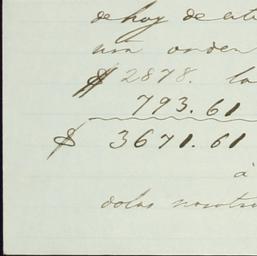 de hoy de est
una orden
$ 2878. la
793.61
$ 3671.61
á
dolas nosotr